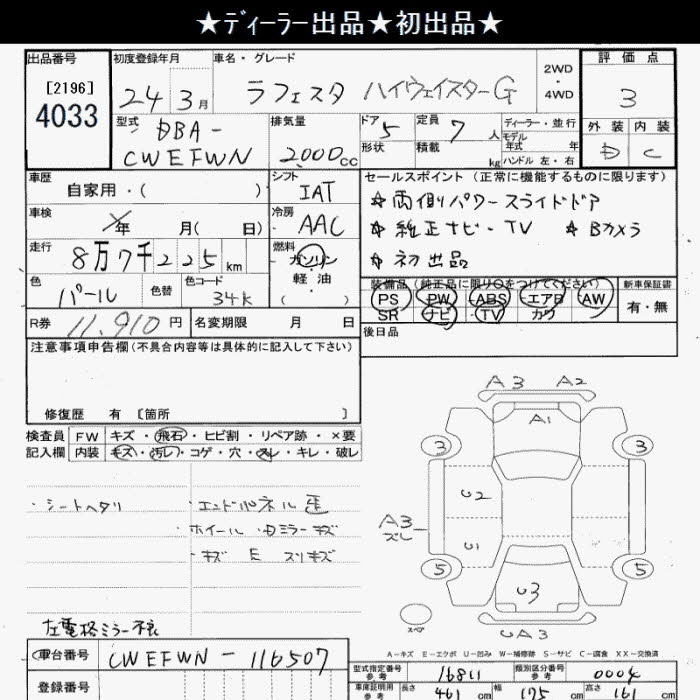 ★ディーラー出品★初出品★
出品番号 初度登録年月 車名・グレード 2WD・4WD 評価点
[2196]
4033
24 3月 ラフェスタ ハイウェイスターG 3
型式 DBA-CWEFWN 排気量 2000cc ドア 5 形状 定員 7人 積載 kg ディーラー・並行 モデル年式 年式 ハンドル 左・右 外装 D 内装 C
車歴 自家用・( ) シフト IAT セールスポイント(正常に機能するものに限ります)
車検 年 月( 日) 冷房 AAC ☆両側パワースライドドア
☆純正ナビ-TV ☆Bカメラ
走行 8万7千225km 燃料 ガソリン・軽油・( ) ☆初出品
色 パール 色替 色コード 34K 装備品(純正品に限り〇をつけてください) 新車保証書
PS PW ABS エアB AW 有・無
SR ナビ TV カワ
R券 11,910円 名変期限 月 日 後日品
注意事項申告欄(不具合内容等は具体的に記入して下さい)
修復歴 有 [箇所 ]
検査員記入欄 FW キズ・飛石・ヒビ割・リペア跡・×要
内装 キズ・汚レ・コゲ・穴・スレ・キレ・破レ
・シートヘタリ
・ホイール
・キズ E スリキズ
A3 A2
A1
3 3
U2
A3
ズレ
U1
5 5
U3
スペア
UA3
A-キズ E-エクボ U-凹み W-補修跡 S-サビ C-腐食 XX-交換済
車台番号 CWEFWN-116507
型式指定番号 参考 16811 類別区分番号 参考 0004
登録番号 車庫証明用 参考 長さ 461cm 幅 175cm 高さ 161cm